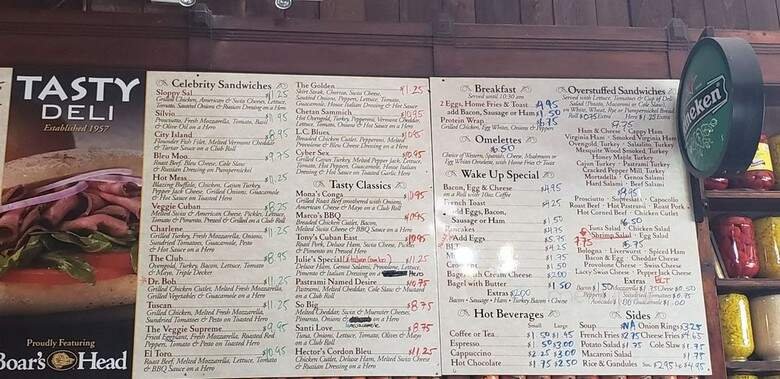 TASTY
DELI
Established 1957
Proudly Featuring
Boar's Head
Celebrity Sandwiches
Sloppy Sal $11.25
Grilled Chicken, American & Swiss Cheese, Lettuce,
Tomato, Sauteed Onions & Russian Dressing on a Hero
Silvio $11.95
Prosciutto, Fresh Mozzarella, Tomato, Basil
& Olive Oil on a Hero
City Island $8.95
Flounder Fish Filet, Melted Vermont Cheddar
& Tartar Sauce on a Club Roll
Bleu Moo $9.75
Roast Beef, Bleu Cheese, Cole Slaw
& Russian Dressing on Pumpernickel
Hot Mess $11.25
Blazing Buffalo, Chicken, Cajun Turkey,
Pepper Jack Cheese, Grilled Onions, Guacamole
& Hot Sauce on Toasted Hero
Veggie Cuban $8.25
Melted Swiss & American Cheese, Pickles, Lettuce,
Tomato & Pimento, Pressed & Grilled on a Club Roll
Charlene $11.25
Grilled Turkey, Fresh Mozzarella, Onions,
Sundried Tomatoes, Guacamole, Pesto
& Hot Sauce on a Hero
The Club $8.95
Ovengold, Turkey, Bacon, Lettuce, Tomato
& Mayo, Triple Decker
Dr. Boh $11.25
Grilled Chicken Cutlet, Melted Fresh Mozzarella,
Grilled Vegetables & Guacamole on a Hero
Tuscan $11.25
Grilled Chicken, Melted Fresh Mozzarella,
Sundried Tomatoes & Pesto on Toasted Hero
The Veggie Supreme $9.95
Fried Eggplant, Fresh Mozzarella, Roasted Red
Peppers, Tomato & Pesto on Toasted Hero
El Toro $10.95
Roast Beef, Melted Mozzarella, Lettuce, Tomato
& BBQ Sauce on a Hero
The Golden $11.25
Skirt Steak, Chorizo, Swiss Cheese,
Sauteed Onions, Peppers, Lettuce, Tomato,
Guacamole, House Italian Dressing & Hot Sauce
Chetan Sammich $10.95
Hot Ovengold, Turkey, Pepperoni, Vermont Cheddar
Lettuce, Tomato, Pimento & Hot Sauce on a Hero
L.C. Blues $10.95
Breaded Chicken Cutlet, Pepperoni, Melted
Provolone & Bleu Cheese Dressing on a Hero
Cyber Sex $10.95
Grilled Cajun Turkey, Melted Pepper Jack, Lettuce,
Tomato, Hot Peppers, Guacamole, House Italian
Dressing & Hot Sauce on Toasted Garlic Hero
Tasty Classics
Mona's Conga $11.95
Grilled Roast Beef smothered with Onions,
American Cheese & Mayo on a Club Roll
Marco's BBQ $10.95
Breaded Chicken Cutlet, Bacon,
Melted Swiss Cheese & BBQ Sauce on a Hero
Tony's Cuban East $10.95
Roast Pork, Deluxe Ham, Swiss Cheese, Pickles
& Pimento on Pressed Hero
Julie's Special $11.25
Deluxe Ham, Genoa Salami, Provolone, Lettuce,
Pimento & Italian Dressing on Hero
Pastrami Named Desire $10.75
Pastrami, Melted Cheddar, Cole Slaw & Mustard
on a Club Roll
So Big $8.75
Melted Cheddar, Swiss & Muenster Cheese,
Pimento, Onions &
Santi Love $8.75
Tuna, Onions, Lettuce, Tomato, Olives & Mayo
on a Club Roll
Hector's Cordon Bleu $11.25
Chicken Cutlet, Deluxe Ham, Melted Swiss Cheese
& Russian Dressing on a Hero
Breakfast
Served until 10:30 am
2 Eggs, Home Fries & Toast 4.95
add Bacon, Sausage or Ham $1.50
Protein Wrap $6.75
Grilled Chicken, Egg Whites, Onions & Peppers
Omelettes
$6.50
Choice of Western, Spanish, Cheese, Mushroom or
Egg Whites Omelette, with Home Fries & Toast
Wake Up Special
Bacon, Egg & Cheese $4.95
on a Roll with 10oz Coffee
French Toast $4.25
Add Eggs, Bacon,
Sausage or Ham $1.50
Pancakes $4.75
Add Eggs $5.75
BLT $4.25
Muffins $1.95
Bagel with Cream Cheese $2.00
Bagel with Butter $1.50
Extras $2.00
Bacon • Sausage • Ham • Turkey Bacon • Cheese
Hot Beverages
Small Large
Coffee or Tea $1.50 $1.95
Espresso $1.50 $3.00
Cappuccino $2.25 $3.00
Hot Chocolate $1.75 $2.50
Overstuffed Sandwiches
Served with Lettuce, Tomatoes & Cup of Deli
Salad (Potato, Macaroni or Cole Slaw)
on White, Wheat, Rye or Pumpernickel Bread
Roll $0.75 Extra Hero $1.25 Extra
$9.75
Ham & Cheese * Cappy Ham
Virginia Ham * Smoked Virginia Ham
Ovengold, Turkey * Salsalito, Turkey
Mesquite Wood Smoked, Turkey
Honey Maple Turkey
Cajun Turkey * Pastrami Turkey
Cracked Pepper Mill, Turkey
Mortadella * Genoa Salami
Hard Salami * Beef Salami
Prosciutto * Sopressata * Capocollo
Roast Beef * Hot Pastrami * Roast Pork
Hot Corned Beef * Chicken Cutlet
Tuna Salad * Chicken Salad
Shrimp Salad * Egg Salad
7.75
Bologna * Liverwurst * Spiced Ham
Bacon & Egg * Cheddar Cheese
Provolone Cheese * Swiss Cheese
Lacey Swiss Cheese * Pepper Jack Cheese
Extras
Sides
Soup N/A Onion Rings $3.25
French Fries $2.75 Cheese Fries $4.65
Potato Salad $1.75 Cole Slaw $1.75
Macaroni Salad $1.75
Rice & Gandules Sm. $2.95 Lg. $4.95
Heineken